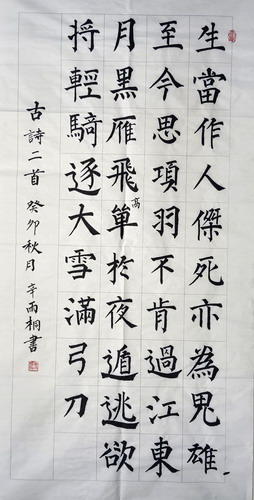 生當作人傑死亦為鬼雄
至今思項羽不肯過江東
月黑雁飛高單於夜遁逃欲
將輕騎逐大雪滿弓刀
古詩二首 癸卯秋月 辛雨桐書